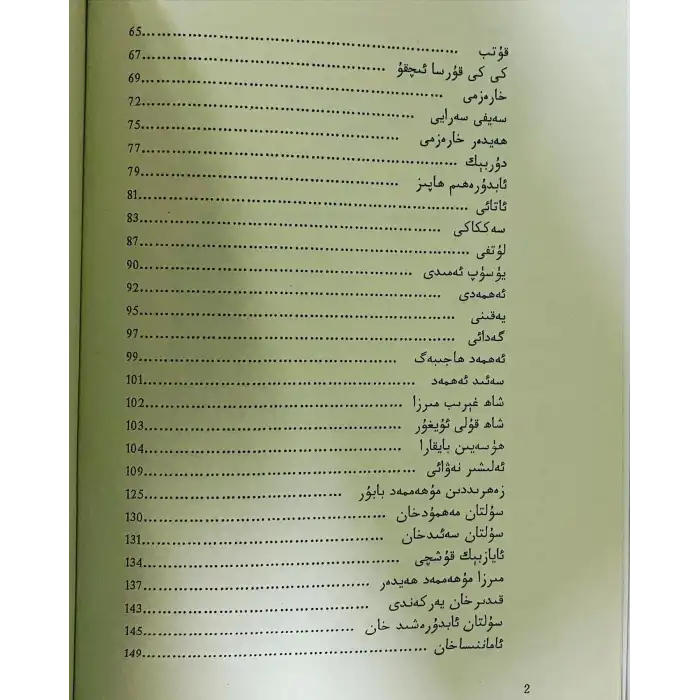 قۇتب ........ 65
كى كى قۇرسا ئىچقۇ ........ 67
خارەزمى ........ 69
سەيفى سەرايى ........ 72
ھەيدەر خارەزمى ........ 75
دۇربېك ........ 77
ئابدۇرەھىم ھاپىز ........ 79
ئاتائى ........ 81
سەككاكى ........ 83
لۇتفى ........ 87
يۈسۈپ ئەمىدى ........ 90
ئەھمەدى ........ 92
يەقىنى ........ 95
گەدائى ........ 97
ئەھمەد ھاجىبەگ ........ 99
سەئىد ئەھمەد ........ 101
شاھ غېرىب مىرزا ........ 102
شاھ قۇلى ئۇيغۇر ........ 103
ھۈسەيىن بايقارا ........ 104
ئەلىشىر نەۋائى ........ 109
زەھرىددىن مۇھەممەد بابۇر ........ 125
سۇلتان مەھمۇدخان ........ 130
سۇلتان سەئىدخان ........ 131
ئايازبېك قۇشچى ........ 134
مىرزا مۇھەممەد ھەيدەر ........ 137
قىدىرخان يەركەندى ........ 143
سۇلتان ئابدۇرەشىد خان ........ 145
ئاماننىساخان ........ 149
2